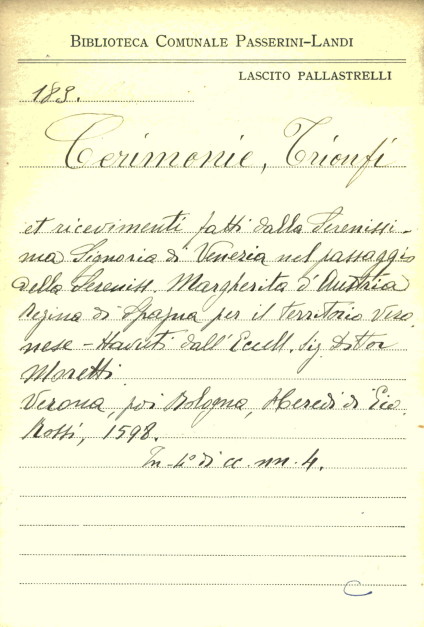 BIBLIOTECA COMUNALE PASSERINI-LANDI
LASCITO PALLASTRELLI
183.
Cerimonie, Trionfi
et ricevimenti fatti dalla Serenissi-
ma Signoria di Venezia nel passaggio
della Sereniss. Margherita d'Austria
Regina di Spagna per il territorio Vero
nese - Havuti dall'Ecell. Sig. Dottor
Moretti.
Verona, poi Bologna, Heredi di Gio.
Rossi, 1598.
In-4° di cc. nn. 4.